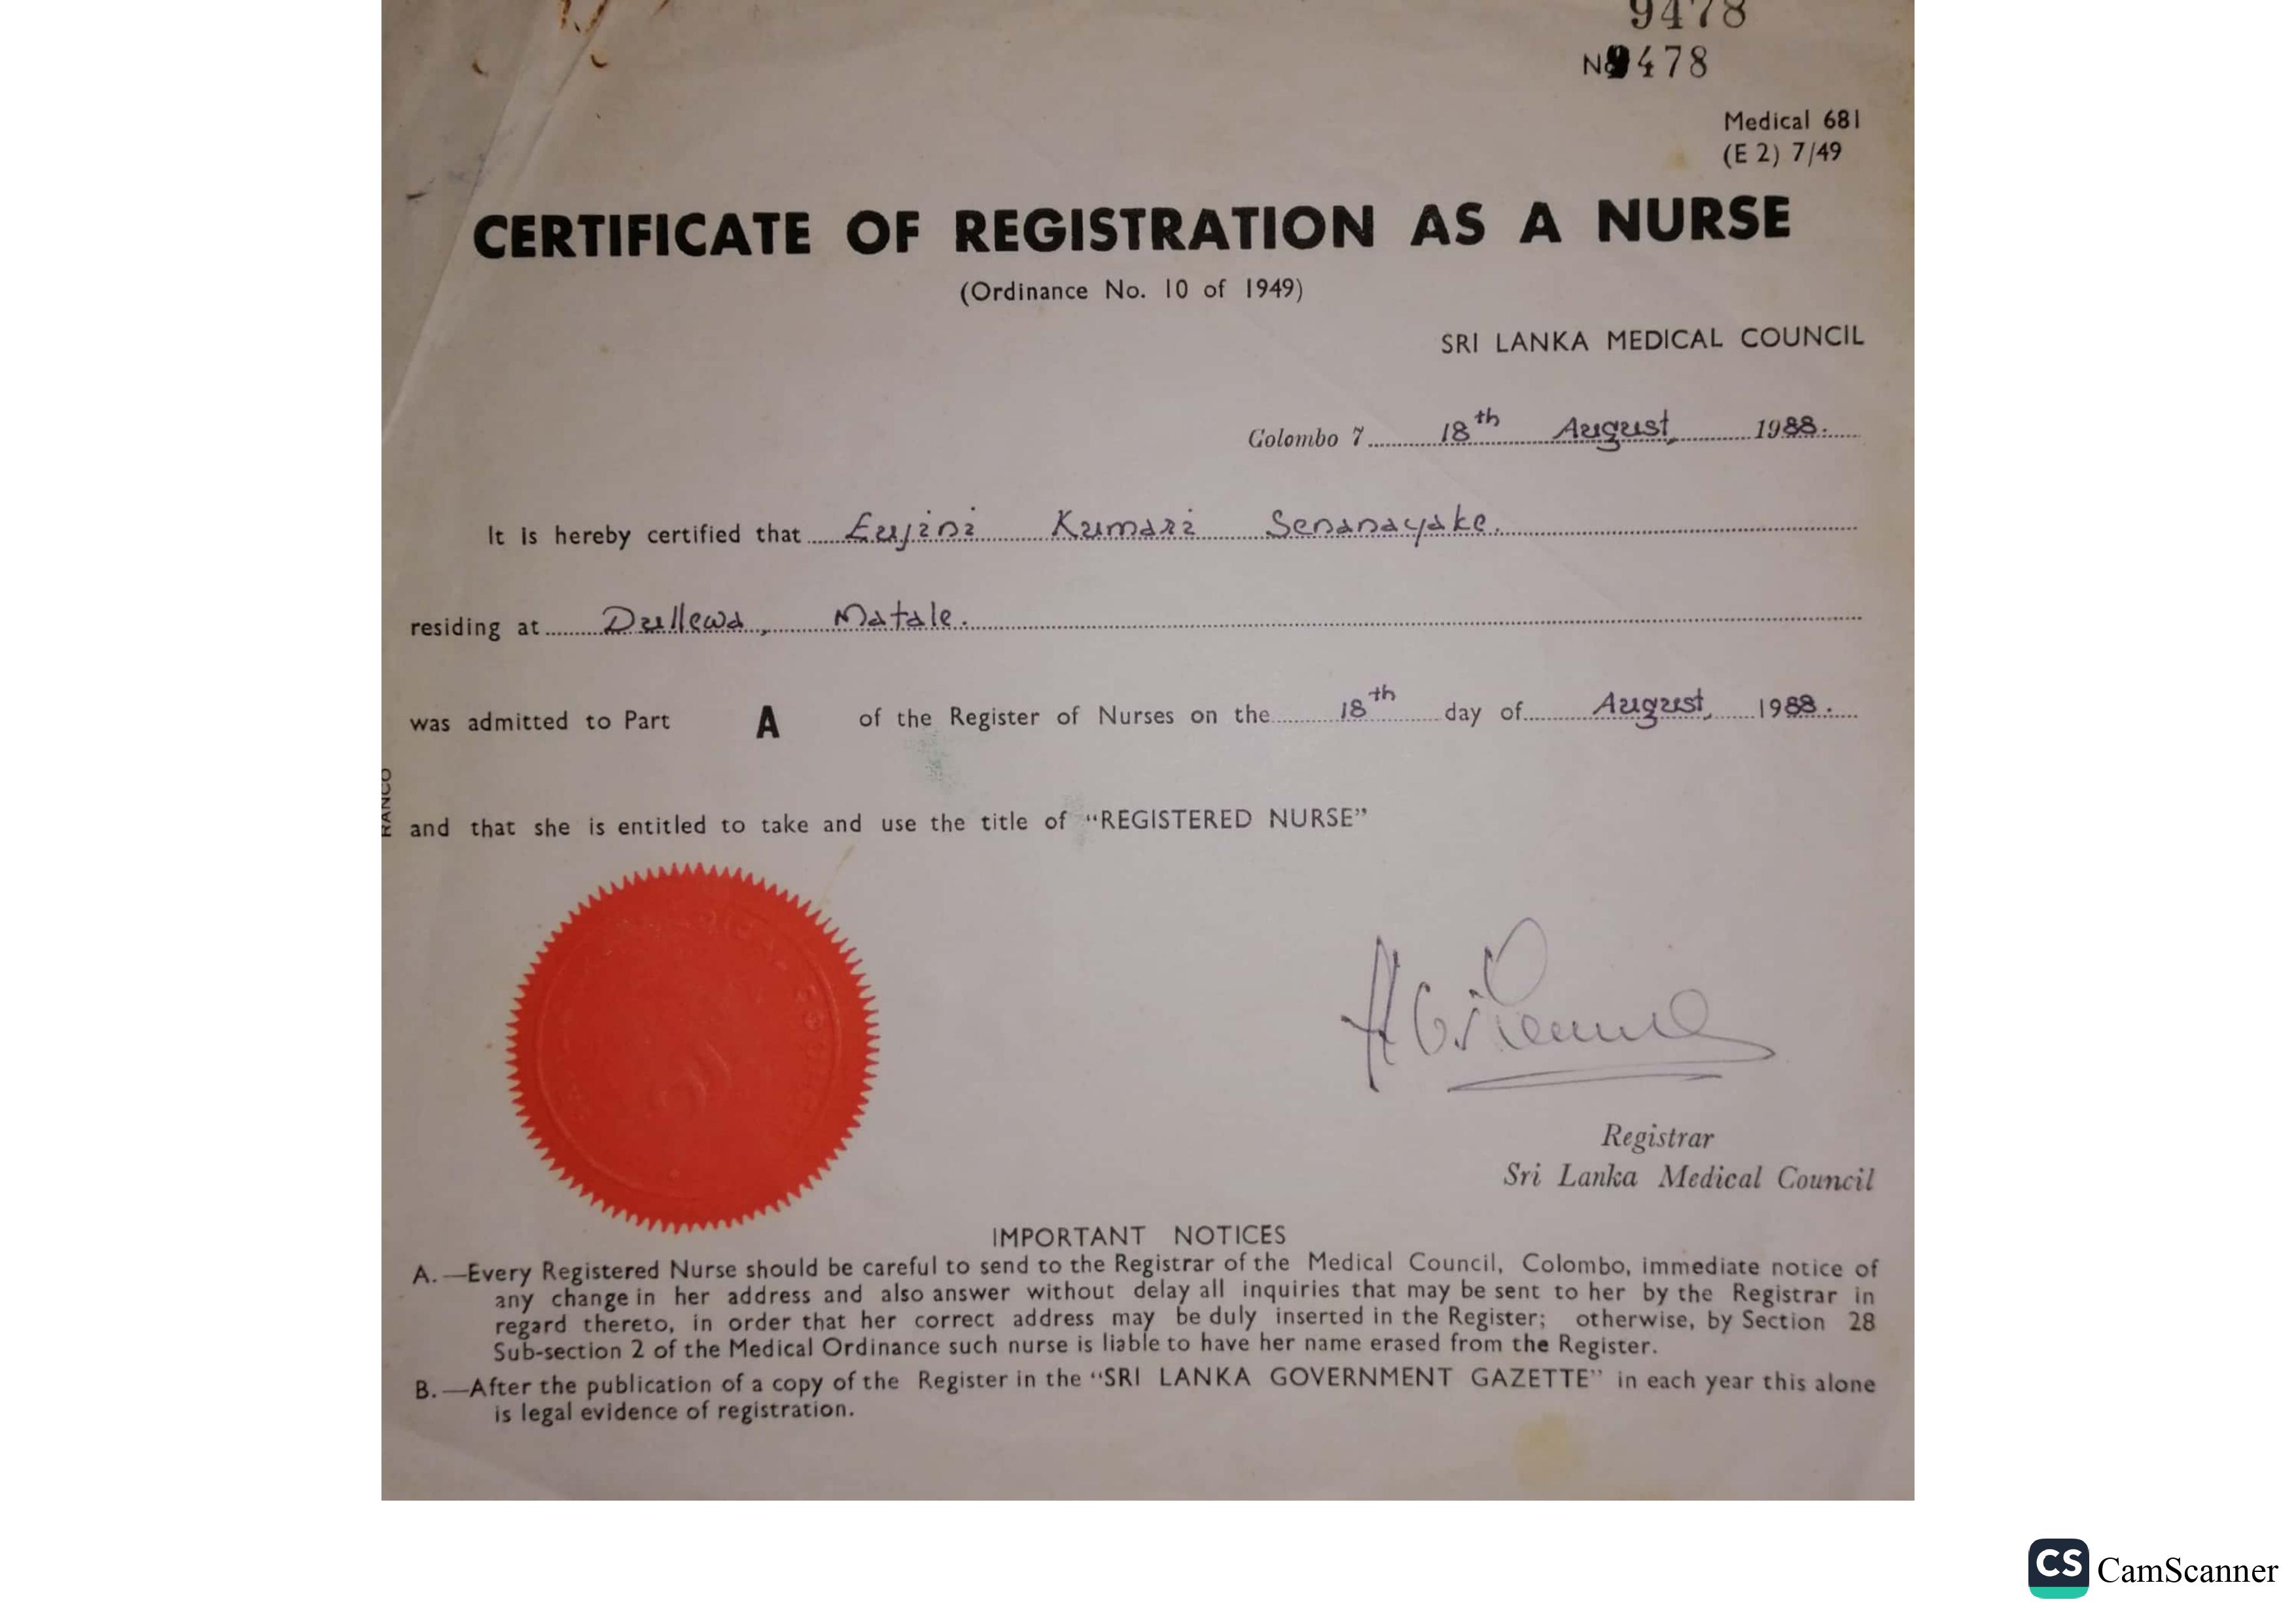 9478
No 9478
Medical 681
(E 2) 7/49
CERTIFICATE OF REGISTRATION AS A NURSE
(Ordinance No. 10 of 1949)
SRI LANKA MEDICAL COUNCIL
Colombo 7 18th August, 1988.
It Is hereby certified that Eujini Kumari Senanayake.
residing at Dullewa, Matale.
was admitted to Part A of the Register of Nurses on the 18th day of August, 1988.
RANCO
and that she is entitled to take and use the title of "REGISTERED NURSE"
Registrar
Sri Lanka Medical Council
IMPORTANT NOTICES
A.—Every Registered Nurse should be careful to send to the Registrar of the Medical Council, Colombo, immediate notice of
any change in her address and also answer without delay all inquiries that may be sent to her by the Registrar in
regard thereto, in order that her correct address may be duly inserted in the Register; otherwise, by Section 28
Sub-section 2 of the Medical Ordinance such nurse is liable to have her name erased from the Register.
B.—After the publication of a copy of the Register in the "SRI LANKA GOVERNMENT GAZETTE" in each year this alone
is legal evidence of registration.
CS CamScanner